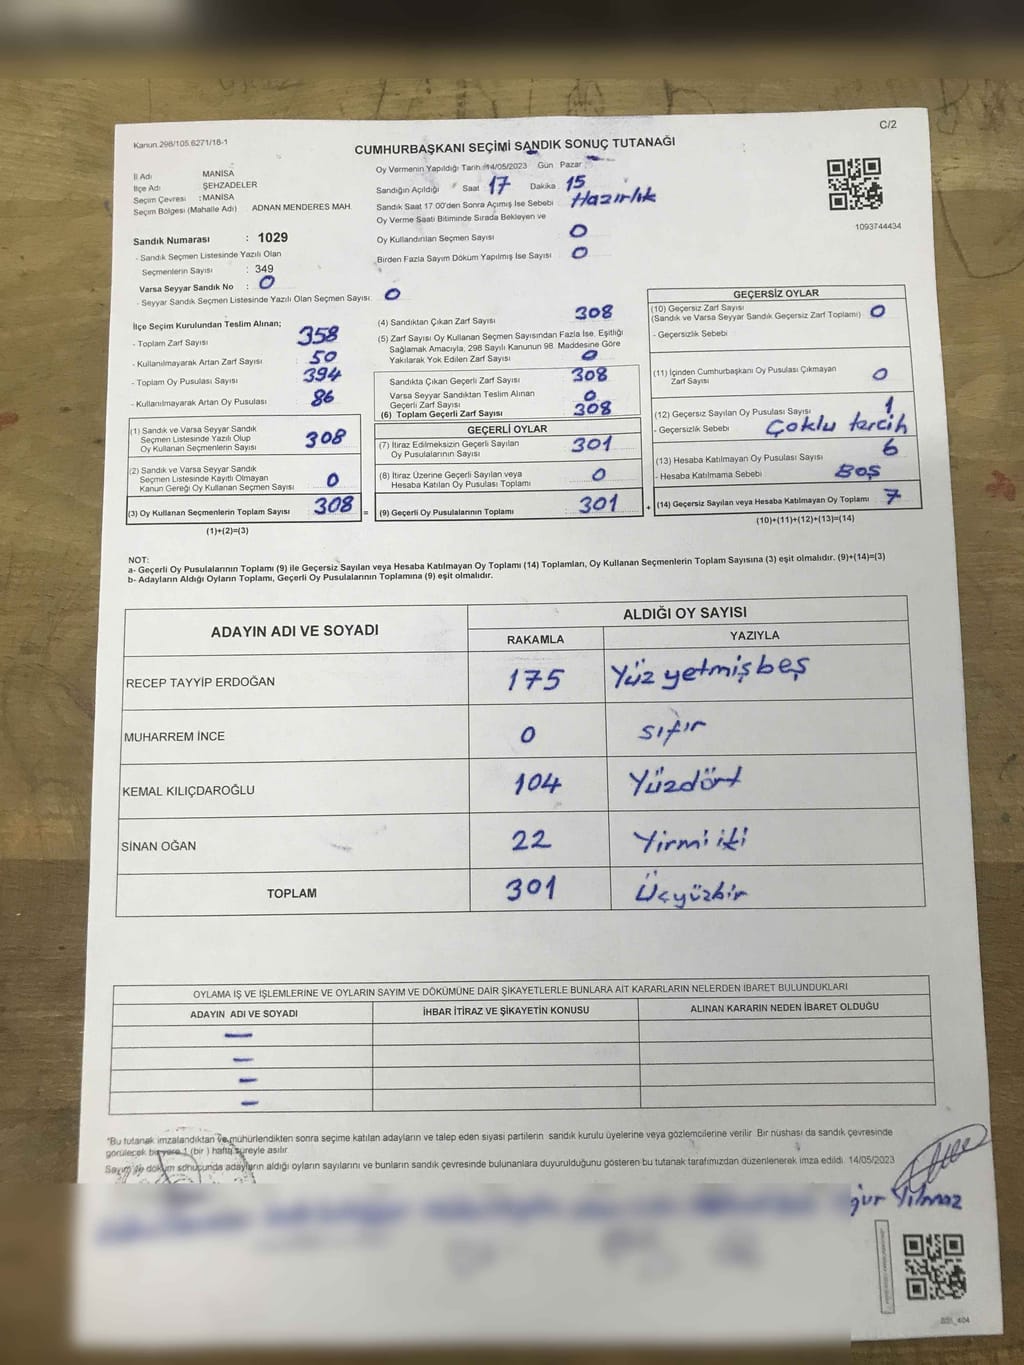 Kanun.298/105.6271/18-1
C/2
CUMHURBAŞKANI SEÇİMİ SANDIK SONUÇ TUTANAĞI
İl Adı MANİSA
İlçe Adı ŞEHZADELER
Seçim Çevresi : MANİSA
Seçim Bölgesi (Mahalle Adı) ADNAN MENDERES MAH.
Oy Vermenin Yapıldığı Tarih :14/05/2023 Gün Pazar
Sandığın Açıldığı Saat 17 Dakika 15
Sandık Saat 17 00'den Sonra Açımış İse Sebebi Hazırlık
Oy Verme Saati Bitiminde Sırada Bekleyen ve
Oy Kullandırılan Seçmen Sayısı 0
Birden Fazla Sayım Döküm Yapılmış İse Sayısı 0
1093744434
Sandık Numarası : 1029
- Sandık Seçmen Listesinde Yazılı Olan
Seçmenlerin Sayısı : 349
Varsa Seyyar Sandık No : 0
- Seyyar Sandık Seçmen Listesinde Yazılı Olan Seçmen Sayısı: 0
İlçe Seçim Kurulundan Teslim Alınan;
- Toplam Zarf Sayısı 358
- Kullanılmayarak Artan Zarf Sayısı 50
- Toplam Oy Pusulası Sayısı 394
- Kullanılmayarak Artan Oy Pusulası 86
(1) Sandık ve Varsa Seyyar Sandık
Seçmen Listesinde Yazılı Olup
Oy Kullanan Seçmenlerin Sayısı 308
(2) Sandık ve Varsa Seyyar Sandık
Seçmen Listesinde Kayıtlı Olmayan
Kanun Gereği Oy Kullanan Seçmen Sayısı 0
(3) Oy Kullanan Seçmenlerin Toplam Sayısı 308 =
(1)+(2)=(3)
(4) Sandıktan Çıkan Zarf Sayısı 308
(5) Zarf Sayısı Oy Kullanan Seçmen Sayısından Fazla İse, Eşitliği
Sağlamak Amacıyla, 298 Sayılı Kanunun 98. Maddesine Göre
Yakılarak Yok Edilen Zarf Sayısı 0
Sandıkta Çıkan Geçerli Zarf Sayısı 308
Varsa Seyyar Sandıktan Teslim Alınan
Geçerli Zarf Sayısı 0
(6) Toplam Geçerli Zarf Sayısı 308
GEÇERLİ OYLAR
(7) İtiraz Edilmeksizin Geçerli Sayılan
Oy Pusulalarının Sayısı 301
(8) İtiraz Üzerine Geçerli Sayılan veya
Hesaba Katılan Oy Pusulası Toplamı 0
(9) Geçerli Oy Pusulalarının Toplamı 301 +
GEÇERSİZ OYLAR
(10) Geçersiz Zarf Sayısı
(Sandık ve Varsa Seyyar Sandık Geçersiz Zarf Toplamı) 0
- Geçersizlik Sebebi
(11) İçinden Cumhurbaşkanı Oy Pusulası Çıkmayan
Zarf Sayısı 0
(12) Geçersiz Sayılan Oy Pusulası Sayısı 1
- Geçersizlik Sebebi Çoklu tercih
(13) Hesaba Katılmayan Oy Pusulası Sayısı 6
- Hesaba Katılmama Sebebi Boş
(14) Geçersiz Sayılan veya Hesaba Katılmayan Oy Toplamı 7
(10)+(11)+(12)+(13)=(14)
NOT:
a- Geçerli Oy Pusulalarının Toplamı (9) ile Geçersiz Sayılan veya Hesaba Katılmayan Oy Toplamı (14) Toplamları, Oy Kullanan Seçmenlerin Toplam Sayısına (3) eşit olmalıdır. (9)+(14)=(3)
b- Adayların Aldığı Oyların Toplamı, Geçerli Oy Pusulalarının Toplamına (9) eşit olmalıdır.
ADAYIN ADI VE SOYADI ALDIĞI OY SAYISI
RAKAMLA YAZIYLA
RECEP TAYYİP ERDOĞAN 175 Yüz yetmiş beş
MUHARREM İNCE 0 sıfır
KEMAL KILIÇDAROĞLU 104 Yüzdört
SİNAN OĞAN 22 Yirmi iki
TOPLAM 301 Üçyüzbir
OYLAMA İŞ VE İŞLEMLERİNE VE OYLARIN SAYIM VE DÖKÜMÜNE DAİR ŞİKAYETLERLE BUNLARA AİT KARARLARIN NELERDEN İBARET BULUNDUKLARI
ADAYIN ADI VE SOYADI İHBAR İTİRAZ VE ŞİKAYETİN KONUSU ALINAN KARARIN NEDEN İBARET OLDUĞU
*Bu tutanak imzalandıktan ve mühürlendikten sonra seçime katılan adayların ve talep eden siyasi partilerin sandık kurulu üyelerine veya gözlemcilerine verilir. Bir nüshası da sandık çevresinde
görülecek bir yere 1 (bir ) hafta süreyle asılır.
Sayım ve döküm sonucunda adayların aldığı oyların sayılarını ve bunların sandık çevresinde bulunanlara duyurulduğunu gösteren bu tutanak tarafımızdan düzenlenerek imza edildi. 14/05/2023
Yılmaz